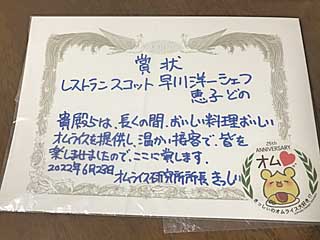 賞状
レストランスコット 早川洋一シェフ
恵子どの
貴殿らは、長くの間、おいしい料理おいしい
オムライスを提供し、温かい接客で、皆を
楽しませましたので、ここに賞します。
2022年6月28日 オムライス研究所所長 きっしい
25th
ANNIVERSARY
オム